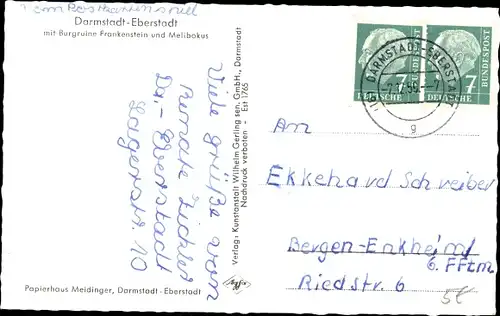 vom Postkartenspiel
Darmstadt-Eberstadt
mit Burgruine Frankenstein und Melibokus
Viele grüße von
Renate
Da.- Eberstadt
Lagerstr. 10
Verlag: Kunstanstalt Wilhelm Gerling sen. GmbH., Darmstadt
Nachdruck verboten - Est 1765
Papierhaus Meidinger, Darmstadt-Eberstadt
DARMSTADT-EBERSTADT
g
7
DEUTSCHE BUNDESPOST
7
DEUTSCHE BUNDESPOST
An
Ekkehard Schreiber
Bergen-Enkheim/
b. Fftm
Riedstr. 6